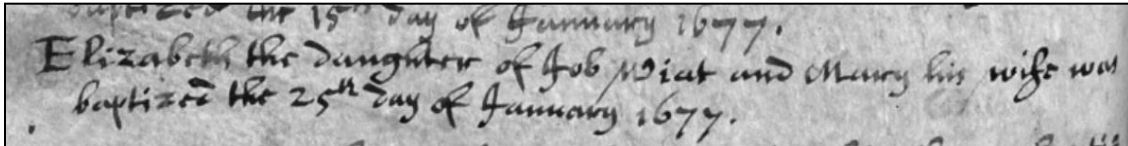 baptized the 15th day of January 1677.
Elizabeth the daughter of Job Wiat and Mary his wife was
baptized the 25th day of January 1677.